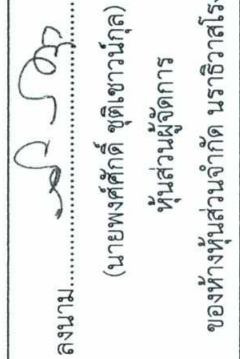 ลงนาม
(นายพงศ์ศักดิ์ ชุติเชาวน์กุล)
หุ้นส่วนผู้จัดการ
ของห้างหุ้นส่วนจำกัด นราธิวาสโรง